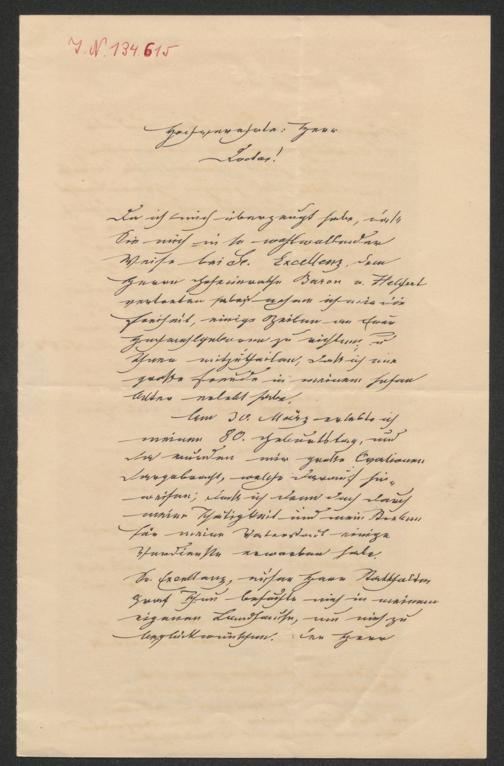 J. N. 134.615
Hochverehrter Herr
Doctor!
Da ich mich überzeugt habe, daß
Sie mich in so wohlwollender
Weise bei Sr. Excellenz, dem
Herrn Geheimrathe Baron v. Helfert
vertreten haben nehme ich mir die
Freiheit, einige Zeilen an Euer
Hochwohlgeboren zu richten, u
Ihnen mitzutheilen, daß ich eine
große Freude in meinem hohen
Alter erlebt habe.
Am 30. März erlebte ich
meinen 80. Geburtstag, und
da wurden mir große Ovationen
dargebracht, welche darauf hin-
weisen, daß ich denn doch durch
meine Thätigkeit und mein Streben
für meine Vaterstadt einige
Verdienste erworben habe.
Se. Excellenz, unser Herr Statthalter
Graf Thun besuchte mich in meinem
eigenen Landhause, um mich zu
beglückwünschen. Der Herr